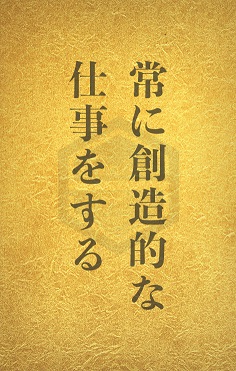 常に創造的な
仕事をする